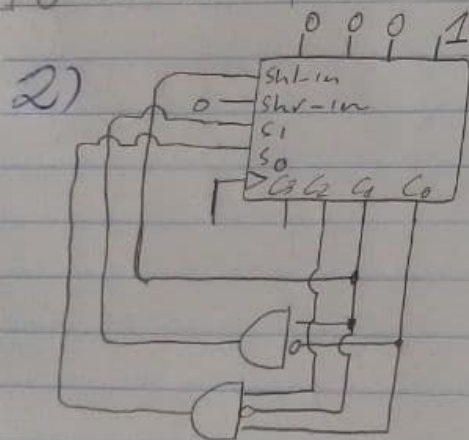 0 0 0 1
2)
shl-in
0 shr-in
S1
S0
C3 C2 C1 C0